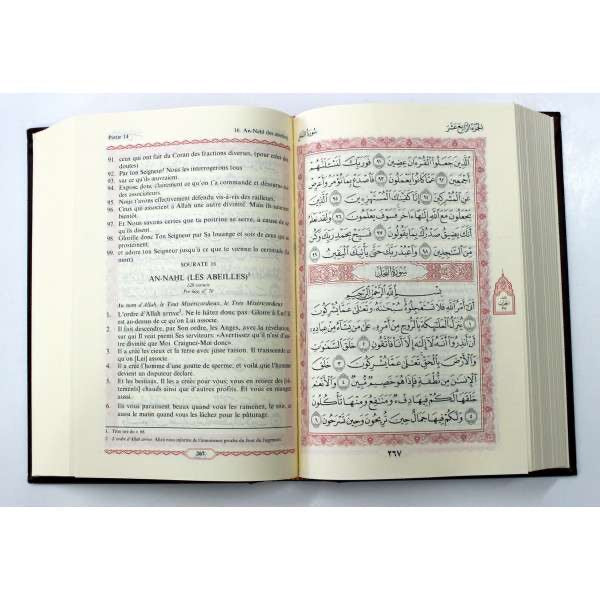 Partie 14
16. An-Nahl (les abeilles)
91. ceux qui ont fait du Coran des fractions diverses, (pour créer des
doutes).
92. Par ton Seigneur! Nous les interrogerons tous
93. sur ce qu'ils œuvraient.
94. Expose donc clairement ce qu'on t'a commandé et détourne-toi
des associateurs.
95. Nous t'avons effectivement défendu vis-à-vis des railleurs.
96. Ceux qui associent à Allah une autre divinité. Mais ils sauront
bientôt.
97. Et Nous savons certes que ta poitrine se serre, à cause de ce
qu'ils disent.
98. Glorifie donc Ton Seigneur par Sa louange et sois de ceux qui se
prosternent;
99. et adore ton Seigneur jusqu'à ce que te vienne la certitude (la
mort)
SOURATE 16
AN-NAHL (LES ABEILLES)¹
128 versets
Pré-hég. n° 70
Au nom d'Allah, le Tout Miséricordieux, le Très Miséricordieux
1. L'ordre d'Allah arrive². Ne le hâtez donc pas. Gloire à Lui! Il
est au-dessus de ce qu'on Lui associe.
2. Il fait descendre, par Son ordre, les Anges, avec la révélation,
sur qui Il veut parmi Ses serviteurs: «Avertissez qu'il n'est d'au-
tre divinité que Moi. Craignez-Moi donc».
3. Il a créé les cieux et la terre avec juste raison. Il transcende ce
qu'on [Lui] associe.
4. Il a créé l'homme d'une goutte de sperme; et voilà que l'homme
devient un disputeur déclaré.
5. Et les bestiaux, Il les a créés pour vous; vous en retirez des [vê-
tements] chauds ainsi que d'autres profits. Et vous en mangez
aussi.
6. Ils vous paraissent beaux quand vous les ramenez, le soir, et
aussi le matin quand vous les lâchez pour le pâturage.
1. Titre tiré du v. 68.
2. L'ordre d'Allah arrive:
267
سورة النحل
الجزء الرابع عشر
الَّذِينَ جَعَلُوا الْقُرْءَانَ عِضِينَ ٩١ فَوَرَبِّكَ لَنَسْـَٔلَنَّهُمْ
أَجْمَعِينَ ٩٢ عَمَّا كَانُوا يَعْمَلُونَ ٩٣ فَاصْدَعْ بِمَا تُؤْمَرُ وَأَعْرِضْ
عَنِ الْمُشْرِكِينَ ٩٤ إِنَّا كَفَيْنَاكَ الْمُسْتَهْزِءِينَ ٩٥ الَّذِينَ
يَجْعَلُونَ مَعَ اللَّهِ إِلَٰهًا ءَاخَرَ فَسَوْفَ يَعْلَمُونَ ٩٦ وَلَقَدْ نَعْلَمُ
أَنَّكَ يَضِيقُ صَدْرُكَ بِمَا يَقُولُونَ ٩٧ فَسَبِّحْ بِحَمْدِ رَبِّكَ وَكُنْ
مِنَ السَّاجِدِينَ ٩٨ وَاعْبُدْ رَبَّكَ حَتَّىٰ يَأْتِيَكَ الْيَقِينُ ٩٩
سورة النحل
بِسْمِ اللَّهِ الرَّحْمَٰنِ الرَّحِيمِ
أَتَىٰ أَمْرُ اللَّهِ فَلَا تَسْتَعْجِلُوهُ سُبْحَانَهُ وَتَعَالَىٰ عَمَّا يُشْرِكُونَ
١ يُنَزِّلُ الْمَلَائِكَةَ بِالرُّوحِ مِنْ أَمْرِهِ عَلَىٰ مَنْ يَشَاءُ مِنْ عِبَادِهِ
أَنْ أَنْذِرُوا أَنَّهُ لَا إِلَٰهَ إِلَّا أَنَا فَاتَّقُونِ ٢ خَلَقَ السَّمَاوَاتِ
وَالْأَرْضَ بِالْحَقِّ تَعَالَىٰ عَمَّا يُشْرِكُونَ ٣ خَلَقَ
الْإِنْسَانَ مِنْ نُطْفَةٍ فَإِذَا هُوَ خَصِيمٌ مُبِينٌ ٤ وَالْأَنْعَامَ
خَلَقَهَا لَكُمْ فِيهَا دِفْءٌ وَمَنَافِعُ وَمِنْهَا تَأْكُلُونَ
٥ وَلَكُمْ فِيهَا جَمَالٌ حِينَ تُرِيحُونَ وَحِينَ تَسْرَحُونَ ٦
٢٦٧